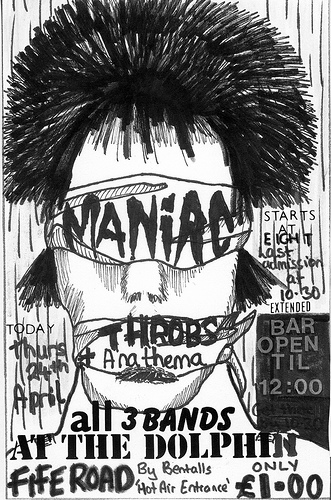 MANiAC
STARTS
AT
EIGHT
Last
admission
AT
10·30
EXTENDED
BAR
OPEN
TIL
12:00
THROBS
+ Anathema
TODAY
Thurs
24th
April
all 3 BANDS
AT THE DOLPHIN
FIFE ROAD
By Bentalls
'Hot Air Entrance'
ONLY
£1·00